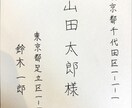 京都千代田区一-一-一
山田太郎様
東京都足立区一-一-
鈴木一郎